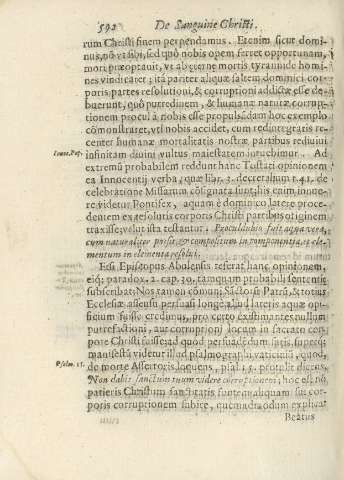 592 De Sanguine Christi.
rum Christi finem perpendamus. Etenim sicut domi-
nus, nõ vt sibi, sed quò nobis opem ferret opportunam,
mori præoptauit, vt ab æternæ mortis tyrannide homi-
nes vindicaret; ita pariter aliquæ saltem dominici cor-
poris partes resolutioni, & corruptioni addictæ esse de-
buerunt, quò putredinem, & humanæ naturæ corrup-
tionem procul à nobis esse propulsãdam hoc exemplo
cõmonstraret, vt nobis accidet, cum redintegratis re-
center humanæ mortalitatis nostræ partibus rediuiui
infinitam diuini vultus maiestatem intuebimur. Ad
Innoc. Pap.
extremũ probabilem reddunt hanc Tostati opinionem
ea Innocentij verba, quæ lib. 3. decretaliũ t. 41. de
celebratione Missarum cõsignata sunt; his enim innue-
re videtur Pontifex, aquam è dominico latere proce-
dentem ex resolutis corporis Christi partibus originem
traxisse; velut ista testantur.
cum naturaliter possit, & compositum in componentia, & ele-
mentum in elementa resolui.
Etsi Episcopus Abulensis referat hanc opinionem,
eiq; paradox. 2. cap. 30. tamquam probabili sententię
subscribat; Nos tamen cõmuni Sãctorum Patrũ, & totius
Ecclesiæ assensu persuasi longè aliud lateris aquæ offi-
cium fuisse credimus, pro certo existimantes nullum
putrefactioni, aut corruptioni locum in sacrato cor-
pore Christi fuisse; ad quod persuadendum satis, superq;
manifestũ videtur illud psalmographi vaticiniũ, quod,
Psalm. 15.
de morte Assertoris loquens, psal. 15. protulit dicens,
Non dabis sanctum tuum videre corruptionem; hoc est, nõ
patieris Christum sanctitatis fontem aliquam sui cor-
poris corruptionem subire, quemadmodum explicat
Beatus